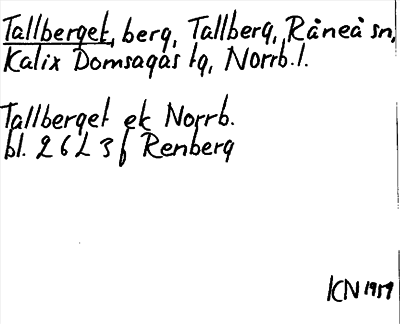 Tallberget, berg, Tallberg, Råneå sn,
Kalix Domsagas tg, Norrb.l.
Tallberget ek Norrb.
bl. 26L3f Renberg
KCN 1959